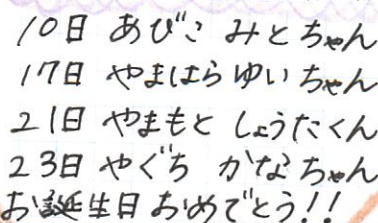 10日 あびこ みとちゃん
17日 やまはら ゆいちゃん
21日 やまもと しょうたくん
23日 やぐち かなちゃん
お誕生日おめでとう!!